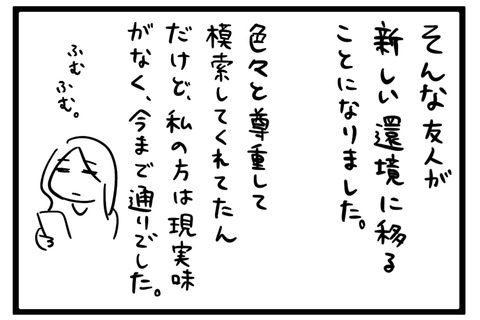 そんな友人が
新しい環境に移る
ことになりました。
色々と尊重して
模索してくれてたん
だけど、私の方は現実味
がなく、今まで通りでした。
ふむ
ふむ。